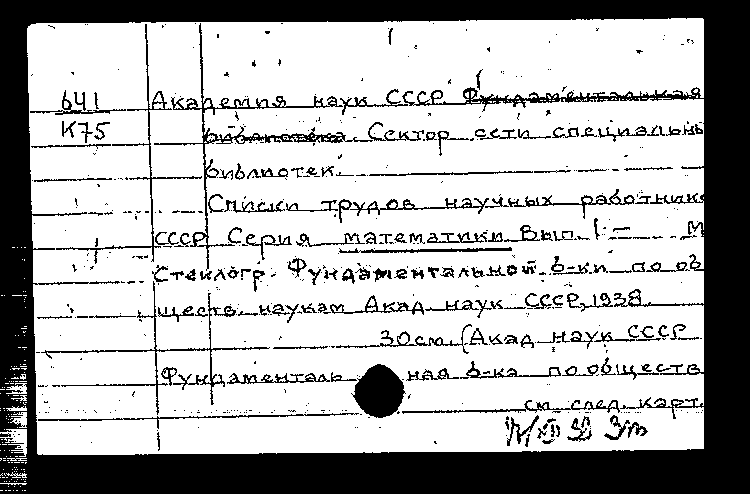 641
К75
Академия наук СССР. Фундаментальная
библиотека. Сектор сети специальны
библиотек.
Списки трудов научных работнико
СССР Серия математики Вып. 1 – М
Стеклогр. Фундаментальной б-ки по об
ществ. наукам Акад. наук СССР, 1938.
30см. (Акад наук СССР
Фундаменталь ная б-ка по обществ
см. след. карт.